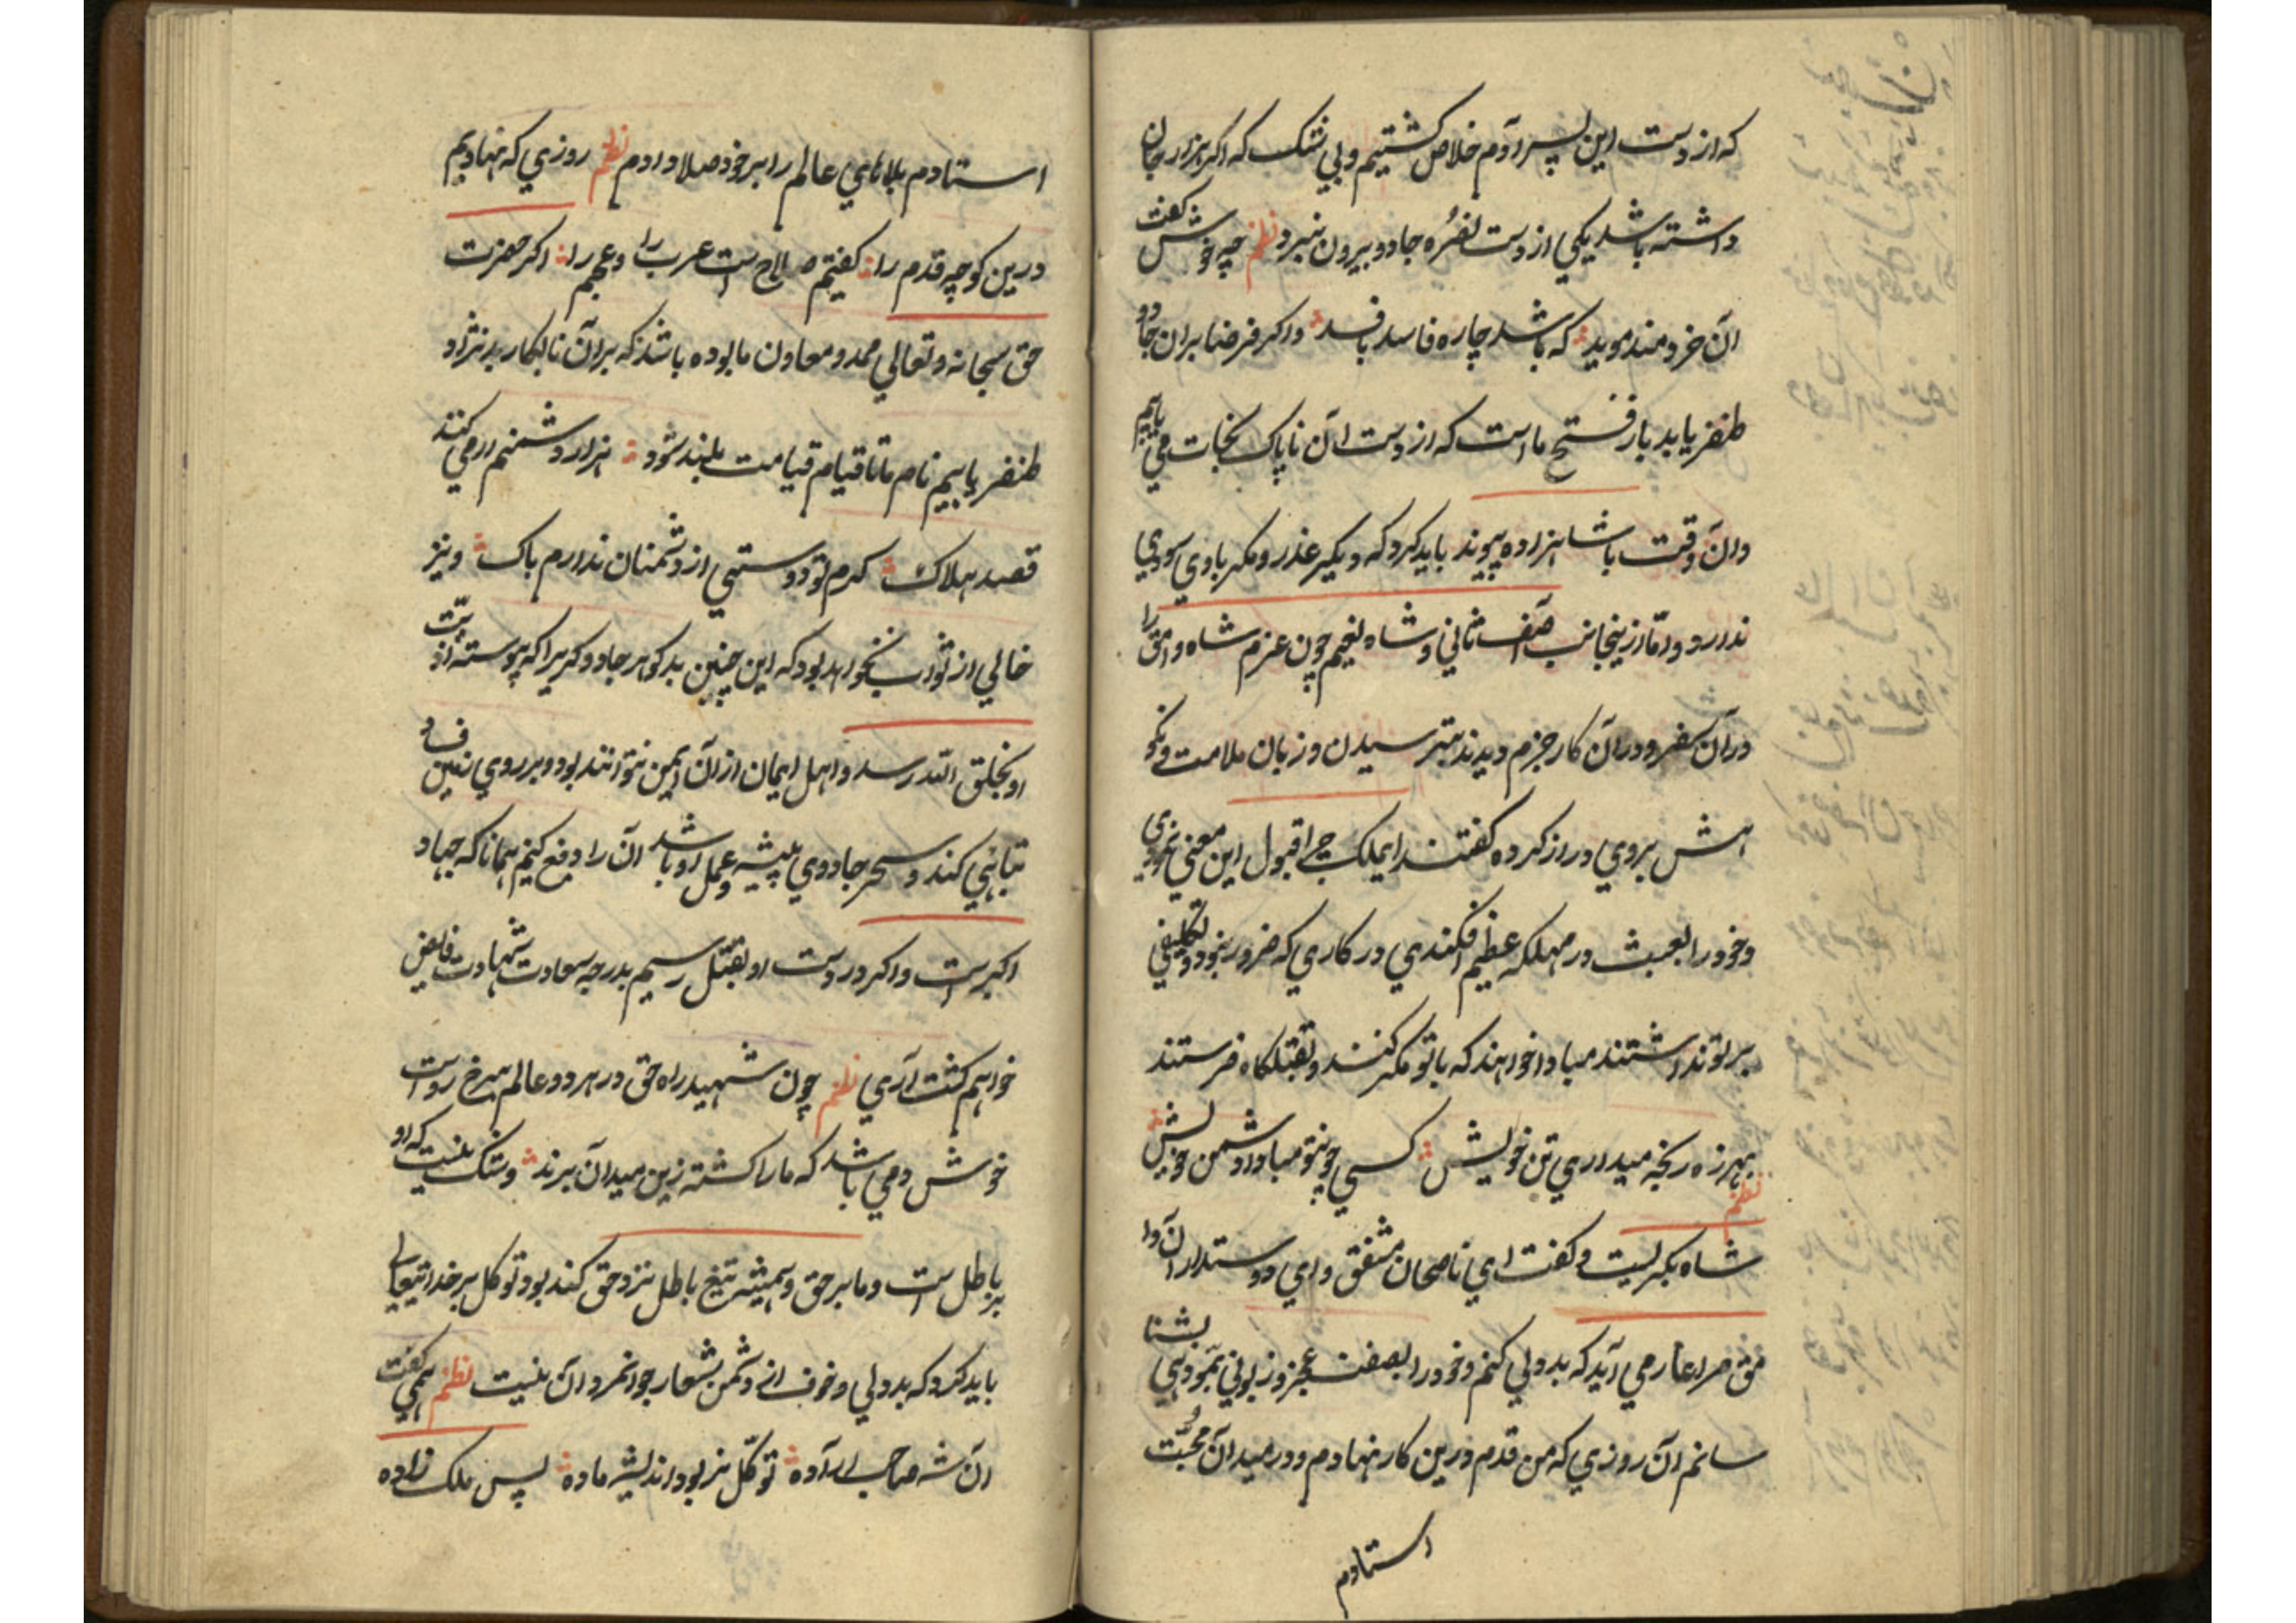 که از دست این پسر آدم خلاص کشتیم و بی شک که اکر هزار جان
داشته باشد یکی از دست نضره جادو بیرون نبرد نظم چه خوش کفت
آن خردمند موبد که باشد چاره فاسد بافسد و اکر فرضا بران جادو
ظفر یابد باز فتح ما است که از دست آن ناپاک نجات می یابیم
وان وقت با شاهزاده پیوند باید کرد که دیکیر عذر و مکر با وی سودی
ندارد و امّا ازینجانب آصف ثانی و شاه نعیم چون عزم شاه وامق را
در آن سفر و در آن کار جزم دیدند بترسیدن و زبان ملامت و نکو
اهش بروی دراز کرده کفتند ایملک چرا قبول این معنی
و خود را بعبث در مهلکه عظیم افکندی در کاری که ضرور نبود و تکلیفی
بر تو نداشتند مبادا خواهند که با تو مکر کنند و بقتلکاه فرستند
نظم بهرزه رنجه میداری تن خویش کسی چو تو مبادا دشمن خویش
شاه بکریست و کفت ای ناصحان مشفق و ای دوستداران وا
مق مرا عار می آید که بد دلی کنم و خود را بصفت عجز و زبونی بشنا
سانم آن روزی که من قدم درین کار نهادم و در میدان محبّت
استادم
استادم بلاهای عالم را بر خود صلا دادم نظم روزی که نهادیم
درین کوچه قدم را کفتیم صلاح است عرب را و عجم را اکر حضرت
حق سبحانه و تعالی ممد و معاون ما بوده باشد که بر آن نابکار بدنژاد
ظفر یابیم نام ما تا قیام قیامت بلند شود هزار دشمنم ار می کنند
قصد هلاک کرم تو دوستی از دشمنان ندارم باک و نیز
خالی از ثواب نخواهد بود که این چنین بدکوهر جادو کریرا که پیوسته اذیّت
او بخلق الله رسد و اهل ایمان از آن ایمن نتوانند بود و بر روی زمین فساد
تباهی کند و سحر جادوی پیشه و عمل او باشد آن را دفع کنیم همانا که جهاد
اکبر است و اکر در دست او بقتل رسیم بدرجه سعادت شهادت فایض
خواهیم کشت آری نظم چون شهید راه حق در هر دو عالم سرخ روست
خوش دمی باشد که ما را کشته زین میدان برند و شک نیست که او
بر باطل است و ما بر حق و همیشه تیغ باطل نزد حق کند بود توکل بر خدا تعالی
باید کرد که بد دلی و خوف از دشمن شعار جوانمردان نیست نظم همی کفت
آن شه صاحب اراده توکّل نر بود اندیشه ماده پس ملک زاده